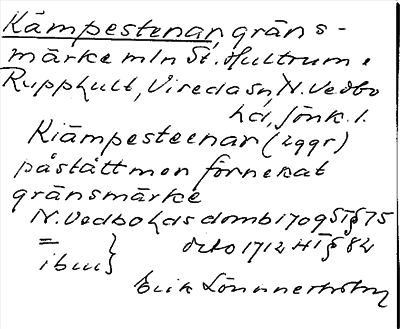 Kämpestenar, gräns-
märke mln St. Hultrum o
Rupphult, Vireda sn, N. Vedbo
hd, Jönk. l.
Kiämpesteenar (2ggr)
påstått men förnekat
gränsmärke
N. Vedbo hds domb 1709 ST § 75
= dito 1712 HT § 82
ibm }
Erik Lönnerholm